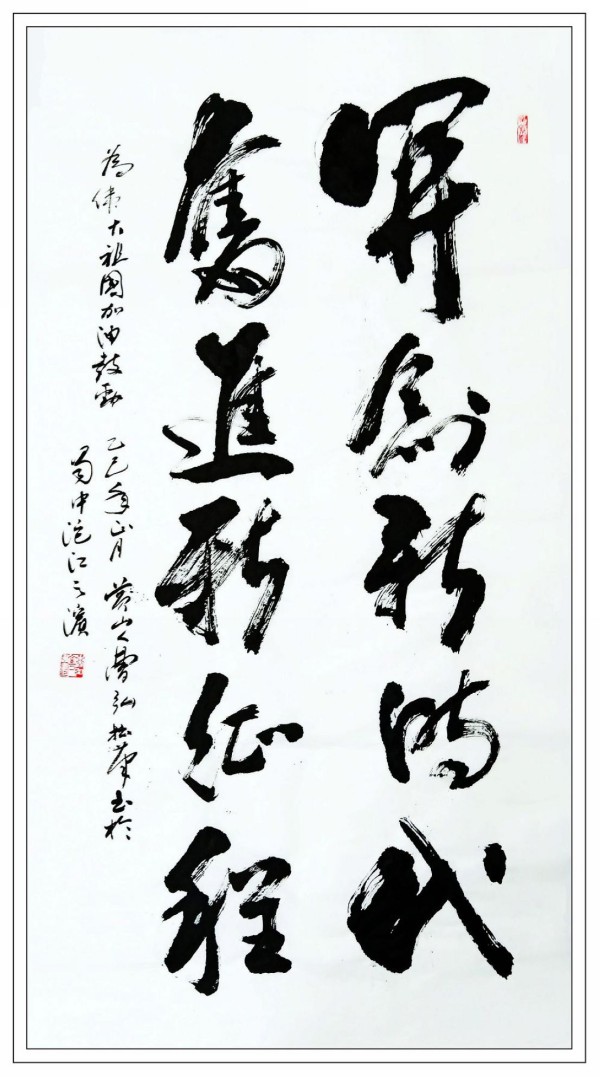 開創新時代
奮進新征程
為偉大祖國加油鼓勁 乙巳年正月 黄山人 弘 書於
蜀中沱江之濱